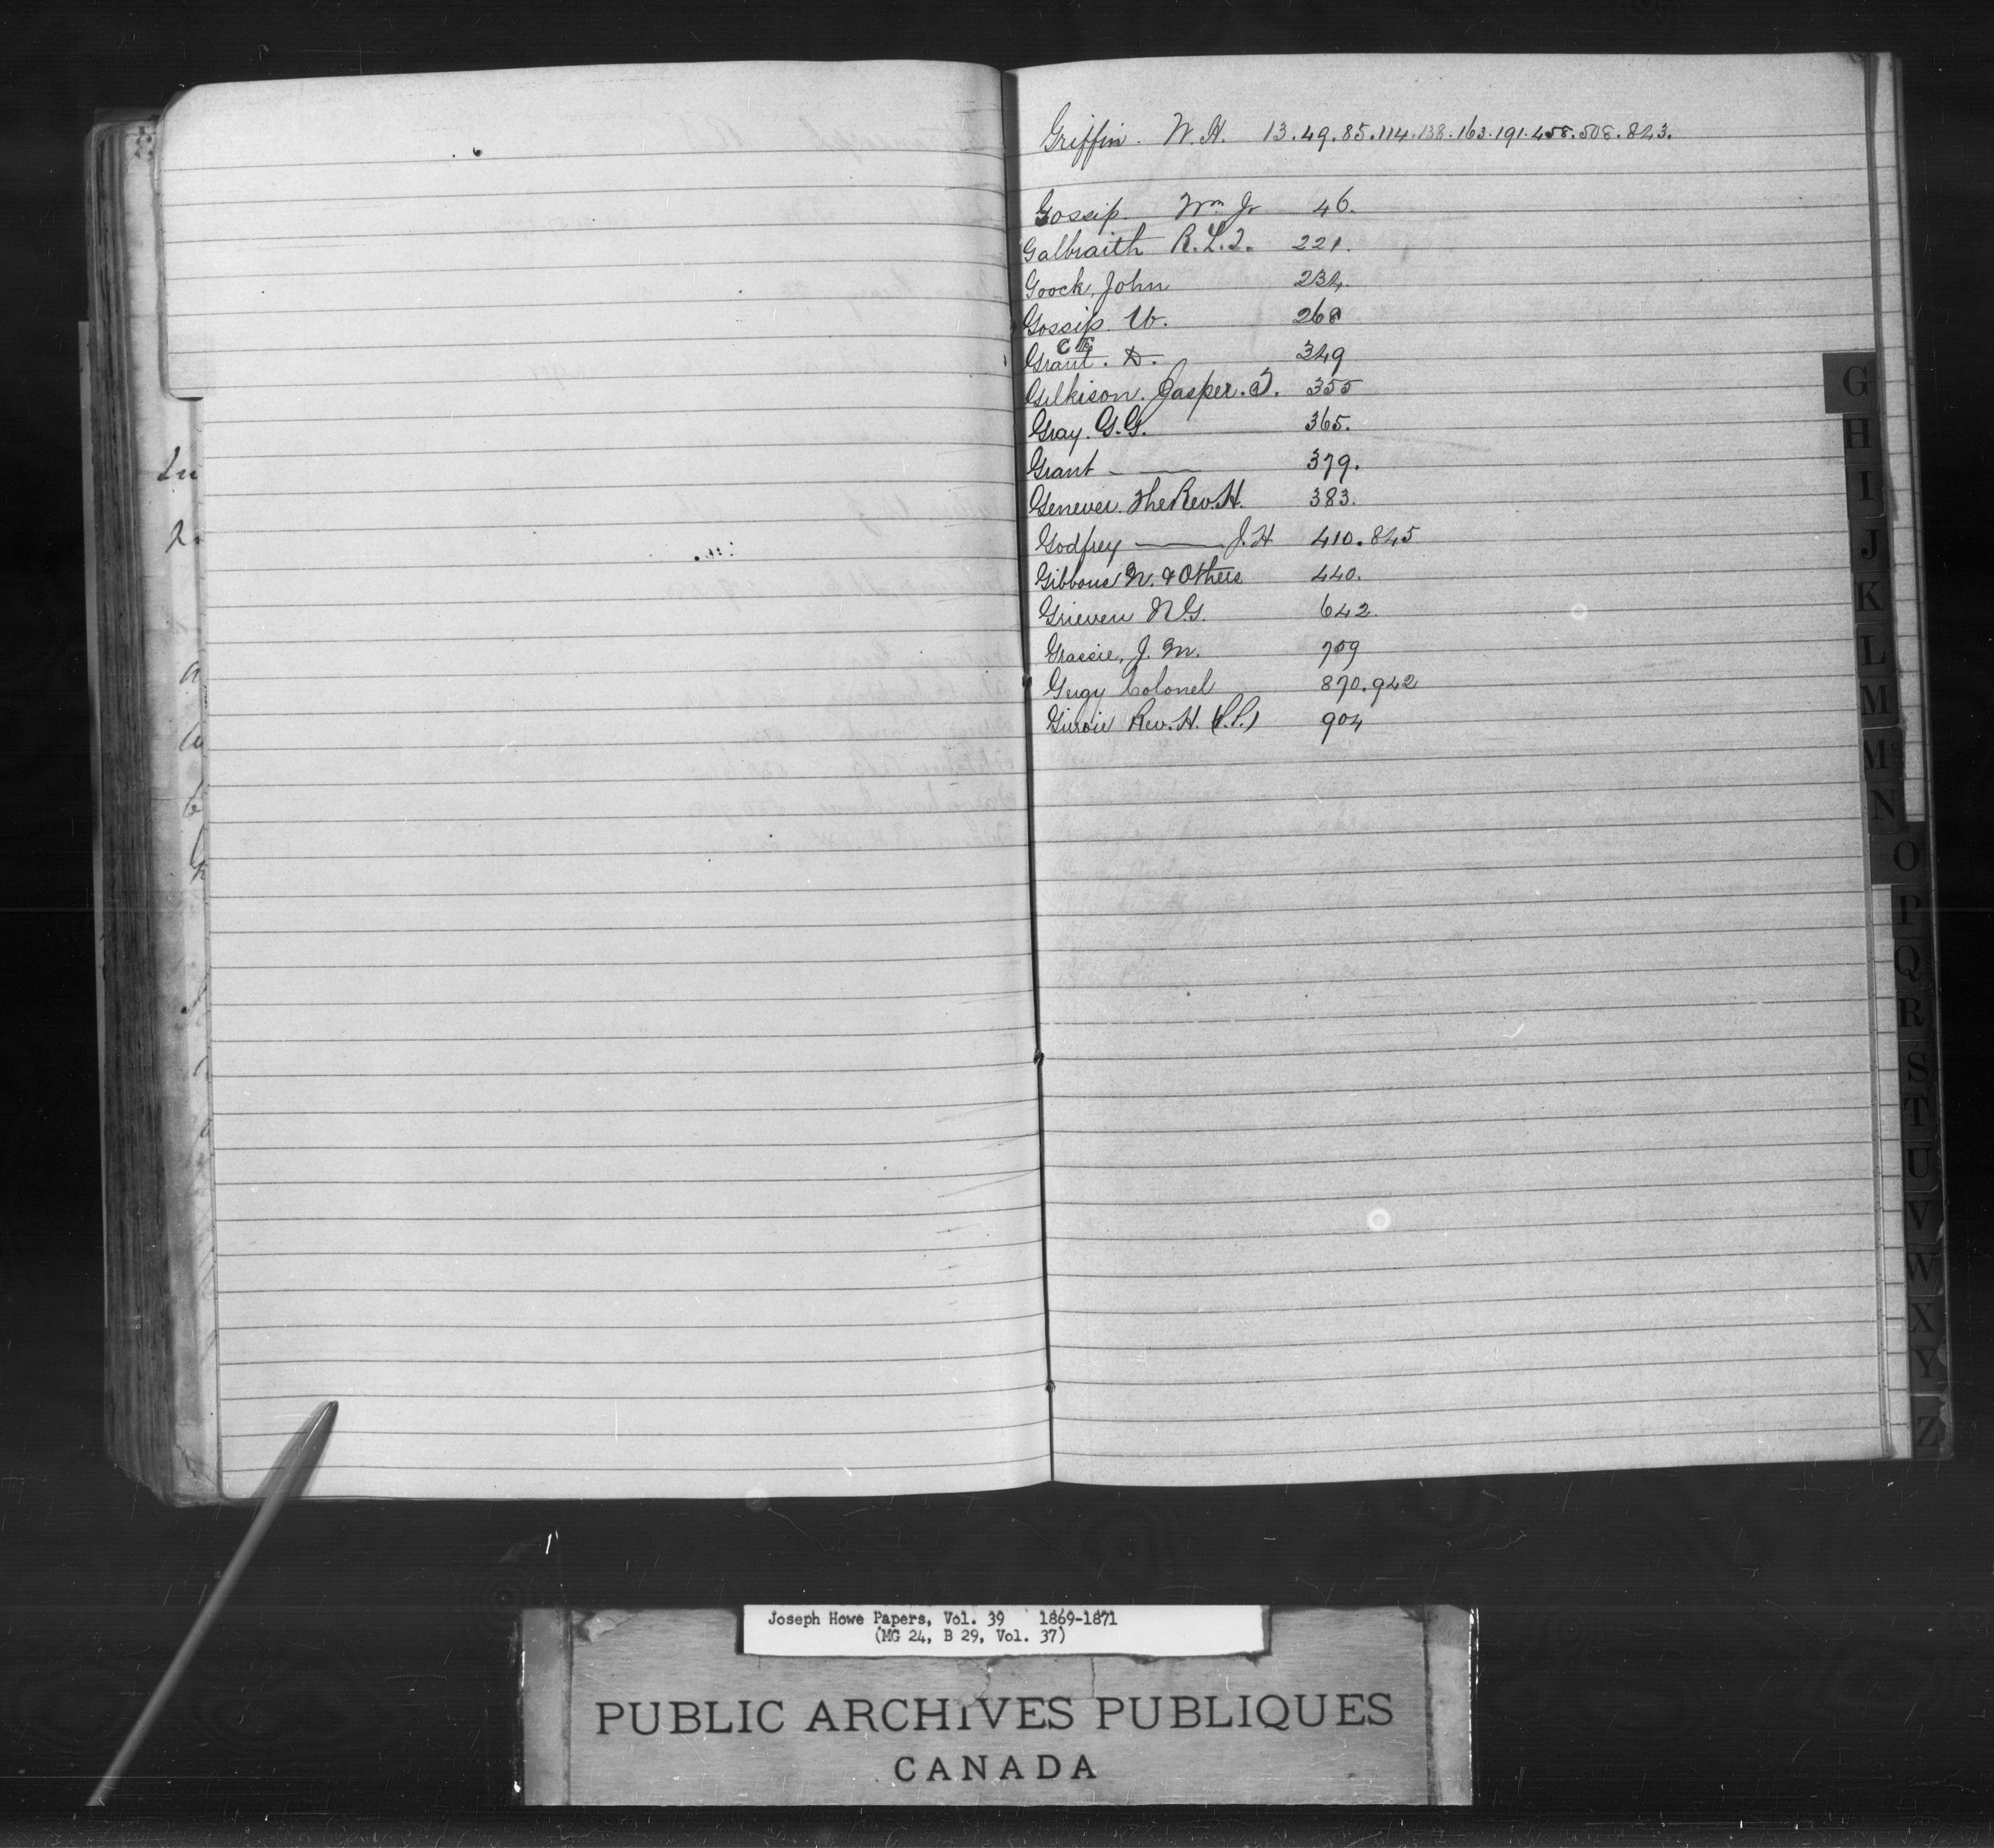 Griffin. W. H. 13. 49. 85. 114. 138. 163. 191. 458. 508. 823.
Gossip. Wm Jr 46.
Galbraith R. L. T. 221.
Goock, John 234.
Gossip. W. 268
Grant. D. 349
Gilkison. Jasper. T. 355
Gray. G. G. 365.
Grant - —— 379.
Genever. The Rev. H. 383.
Godfrey —— J. H 410. 845
Gibbons N. & Others 440.
Grieven N. G. 642.
Grassie, J. M. 709
Gugy Colonel 870. 942
Girroir Rev. H. (P.P.) 904
G
H
I
J
K
L
M
Mc
N
O
P
Q
R
S
T
U
V
W
X
Y
Z
Joseph Howe Papers, Vol. 39 1869-1871
(MG 24, B 29, Vol. 37)
PUBLIC ARCHIVES PUBLIQUES
CANADA